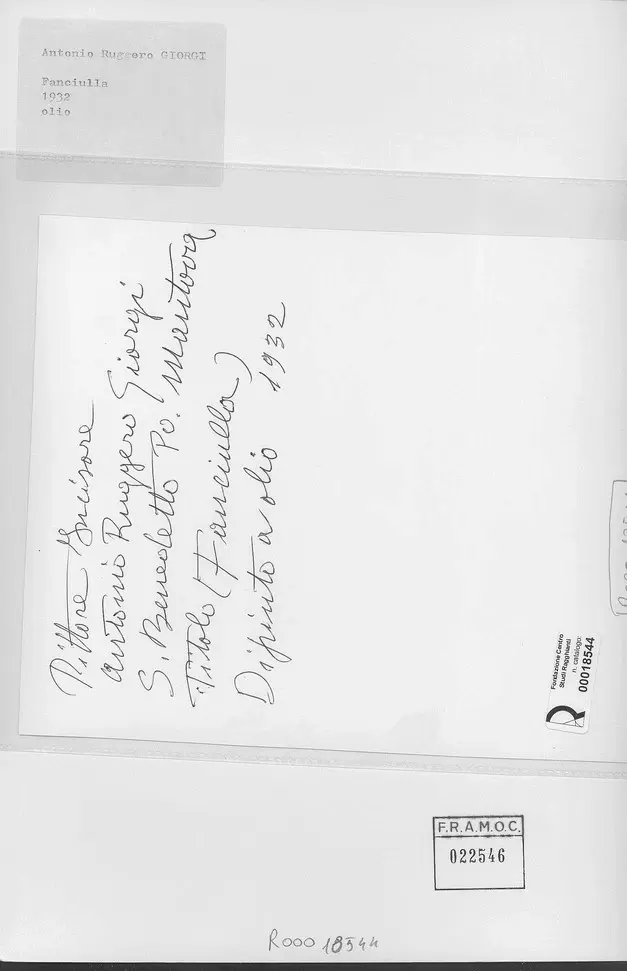 Antonio Ruggero GIORGI
Fanciulla
1932
olio
Pittore Incisore
Antonio Ruggero Giorgi
S. Benedetto Po. Mantova
Titolo (Fanciulla)
Dipinto a olio 1932
Fondazione Centro
Studi Ragghianti
n. catalogo:
00018544
F.R.A.M.O.C.
022546
R000 18544